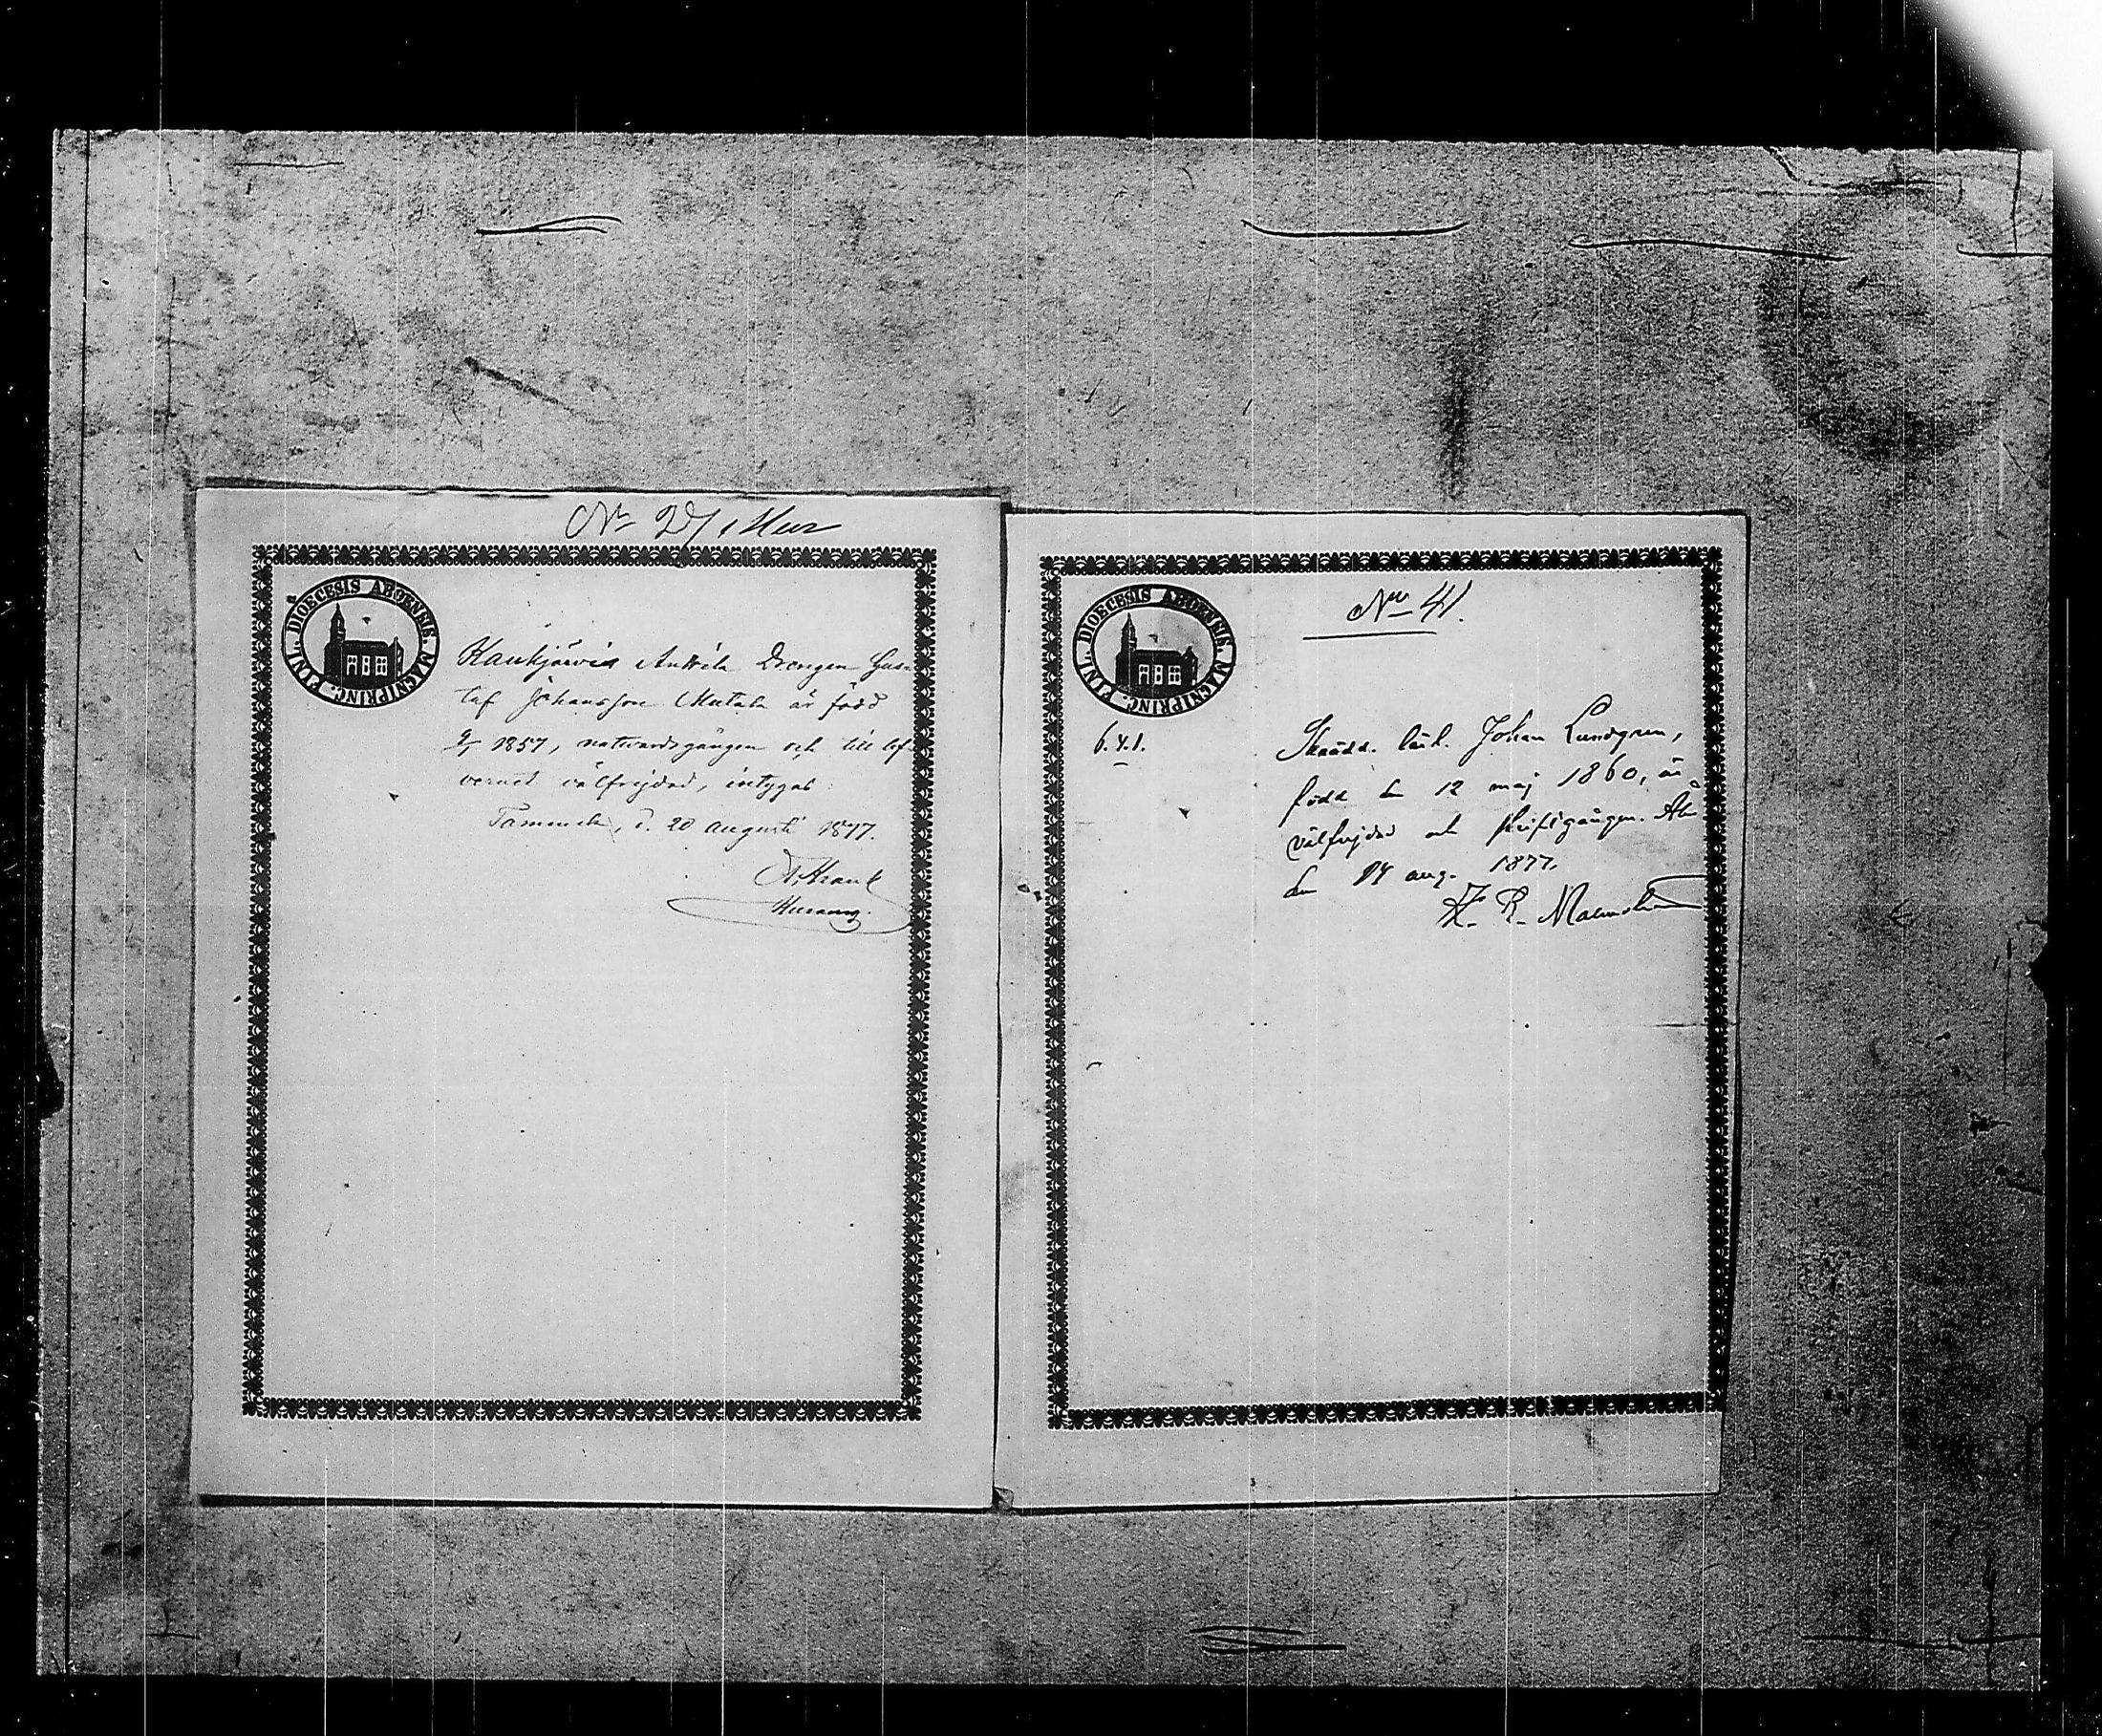 No 27
DIOECESIS ABOENSIS. MAGNIPRINC. FINL.
Kaukjärvis Anttila Drengen Gus-
taf Johansson Mutala är född
1857, nattvardsgången och till lef-
vernet välfrejdad, intygar:
Tammela, d. 20 augusti 1877.
No 41.
DIOECESIS ABOENSIS. MAGNIPRINC. FINL.
6.4.1.
Skrädd. lärl. Johan Lundgren,
född den 12 maj 1860, är
välfrejdad och skriftgången. Åbo
den 14 aug. 1877.
K. R. Malmström